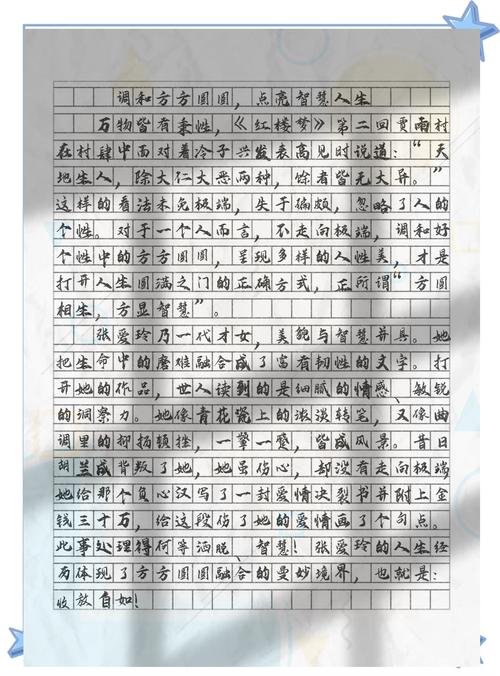 调和方方圆圆，点亮智慧人生
万物皆有秉性，《红楼梦》第二回贾雨村
在村肆中面对着冷子兴发表高见时说道：“天
地生人，除大仁大恶两种，馀者皆无大异。”
这样的看法未免极端，失于偏颇，忽略了人的
个性。对于一个人而言，不走向极端，调和好
个性中的方方圆圆，呈现多样的人性美，才是
打开人生圆满之门的正确方式，正所谓“方圆
相生，方显智慧”。
张爱玲乃一代才女，美貌与智慧并具。她
把生命中的磨难融合成了富有韧性的文字。打
开她的作品，世人读到的是细腻的情感、敏锐
的洞察力。她像青花瓷上的浓淡转笔，又像曲
调里的抑扬顿挫，一颦一蹙，皆成风景。昔日
胡兰成背叛了她，她虽伤心，却没有走向极端，
她给那个负心汉写了一封爱情决裂书并附上金
钱三十万，给这段伤了她的爱情画了个句点。
此事处理得何等洒脱、智慧！张爱玲的人生经
历体现了方方圆圆融合的曼妙境界，也就是：
收放自如！